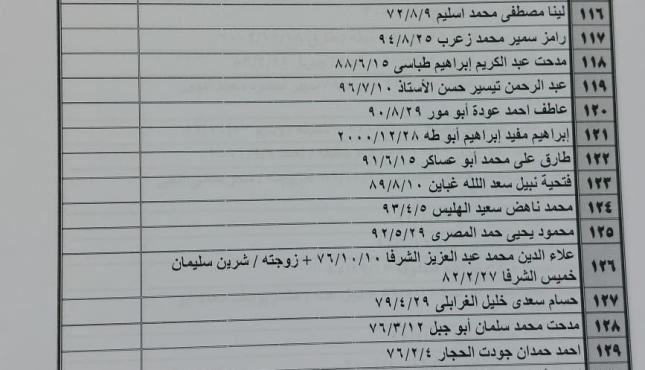 ١١٦ لينا مصطفى محمد اسليم ٧٢/٨/٩
١١٧ رامز سمير محمد زعرب ٩٤/٨/٢٥
١١٨ مدحت عبد الكريم إبراهيم طباسى ٨٨/٦/١٥
١١٩ عبد الرحمن تيسير حسن الأستاذ ٩٦/٧/١٠
١٢٠ عاطف احمد عودة أبو مور ٩٠/٨/٢٩
١٢١ إبراهيم مفيد إبراهيم أبو طه ٢٠٠٠/١٢/٢٨
١٢٢ طارق على محمد أبو عساكر ٩١/٦/١٥
١٢٣ فتحية نبيل سعد اللله غباين ٨٩/٨/١٠
١٢٤ محمد ناهض سعيد الهليس ٩٣/٤/٥
١٢٥ محمود يحيى حمد المصرى ٩٢/٥/٢٩
١٢٦ علاء الدين محمد عبد العزيز الشرفا ٧٦/١٠/١٠ + زوجته / شرين سليمان
خميس الشرفا ٨٢/٢/٢٧
١٢٧ حسام سعدى خليل الغرابلى ٧٩/٤/٢٩
١٢٨ مدحت محمد سلمان أبو جبل ٧٦/٣/١٢
١٢٩ احمد حمدان جودت الحجار ٧٦/٢/٤